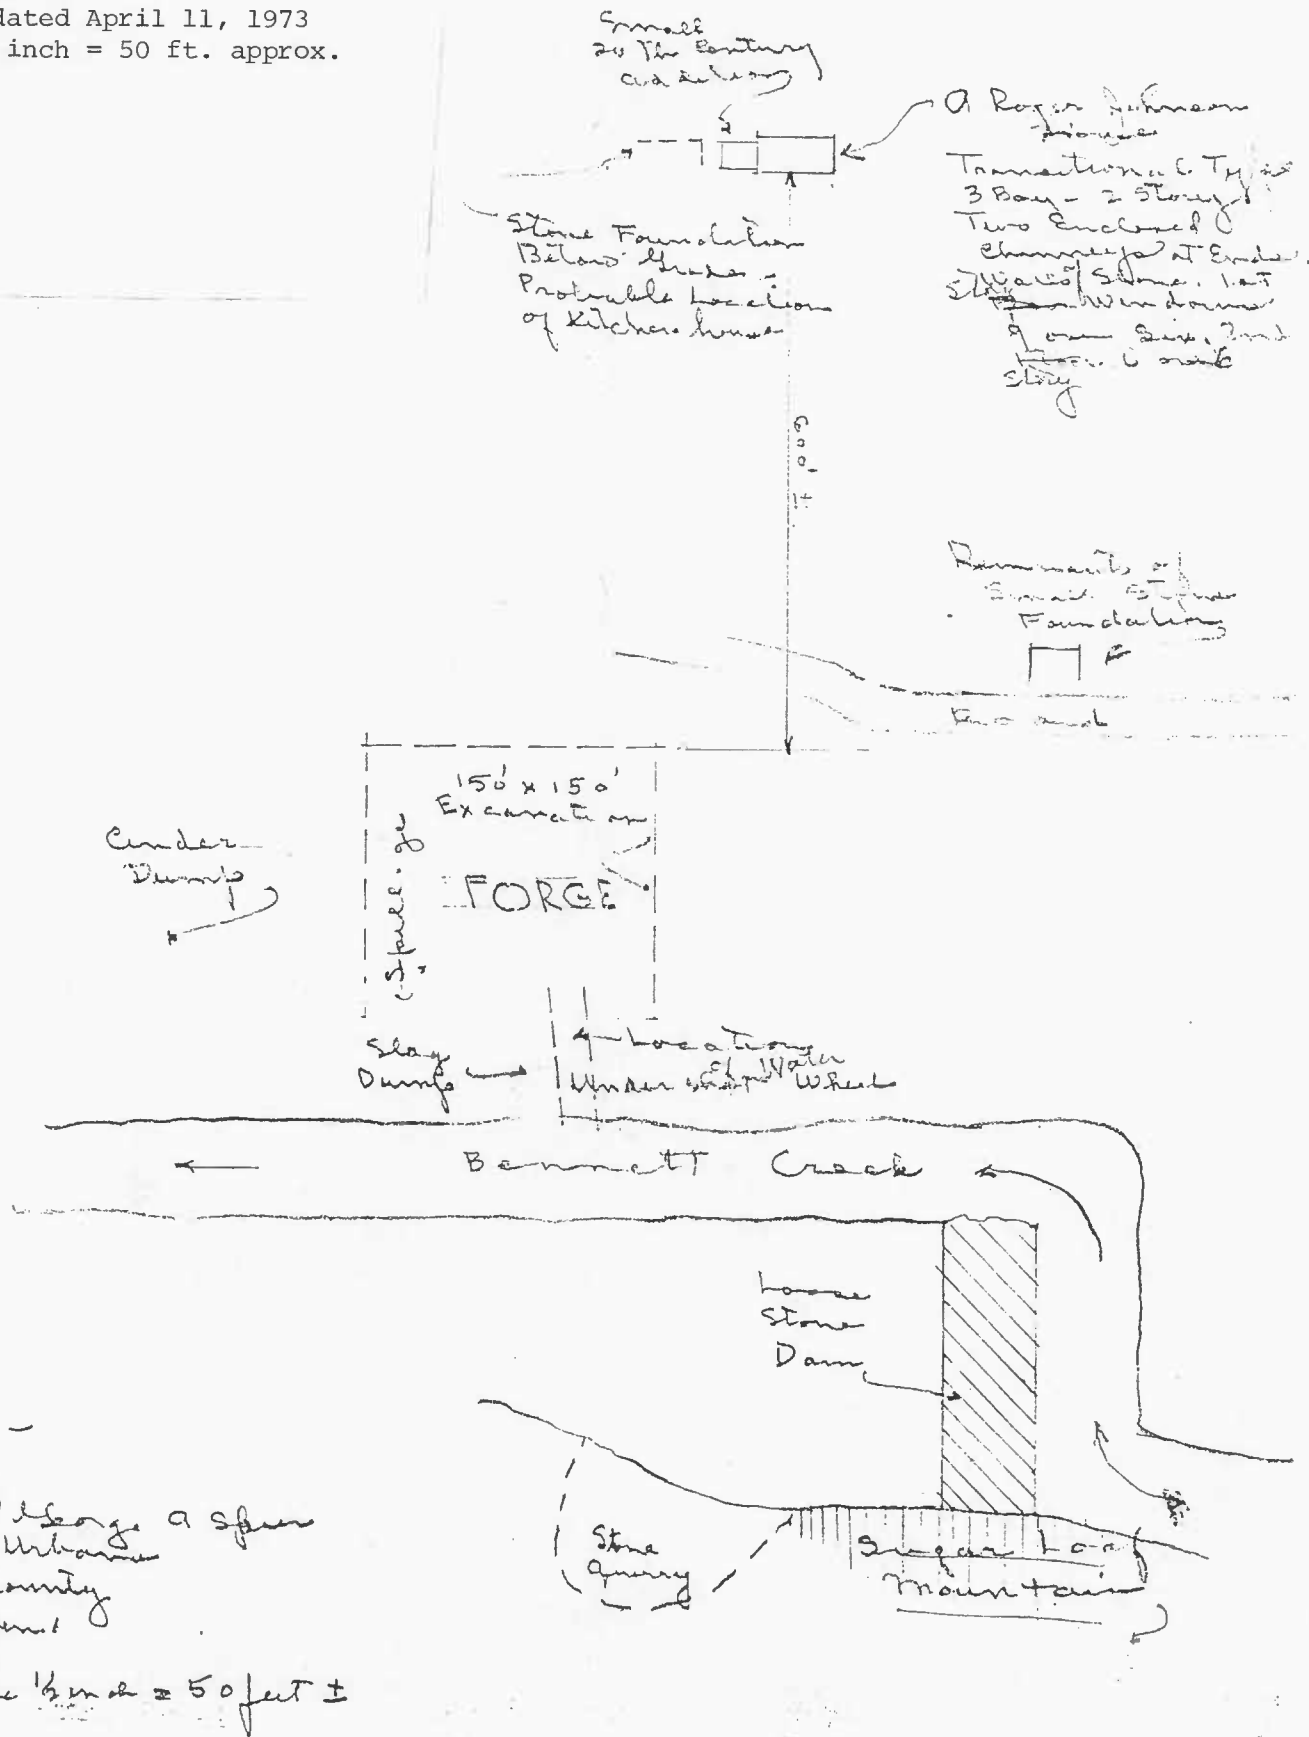 dated April 11, 1973
inch = 50 ft. approx.
Small
20 Th Century
addition
A Roger Johnson
House
Transitional Type
3 Bay - 2 Story
Two Enclosed
Chimneys at Ends.
Walls Stone. 1st
Story Windows
9 over Six. 2nd
6 over 6
Story
Stone Foundation
Below Grade -
Probable Location
of Kitchen house
600' ±
Remnants of
Small Stone
Foundation
150' x 150'
Excavation
FORGE
Cinder
Dump
Slag
Dump
Location
of Water
Under Wheel
Bennett Creek
Loose
Stone
Dam
Stone
Quarry
Sugar Loaf
Mountain
George A
Urbana
county
1/2 inch = 50 feet ±